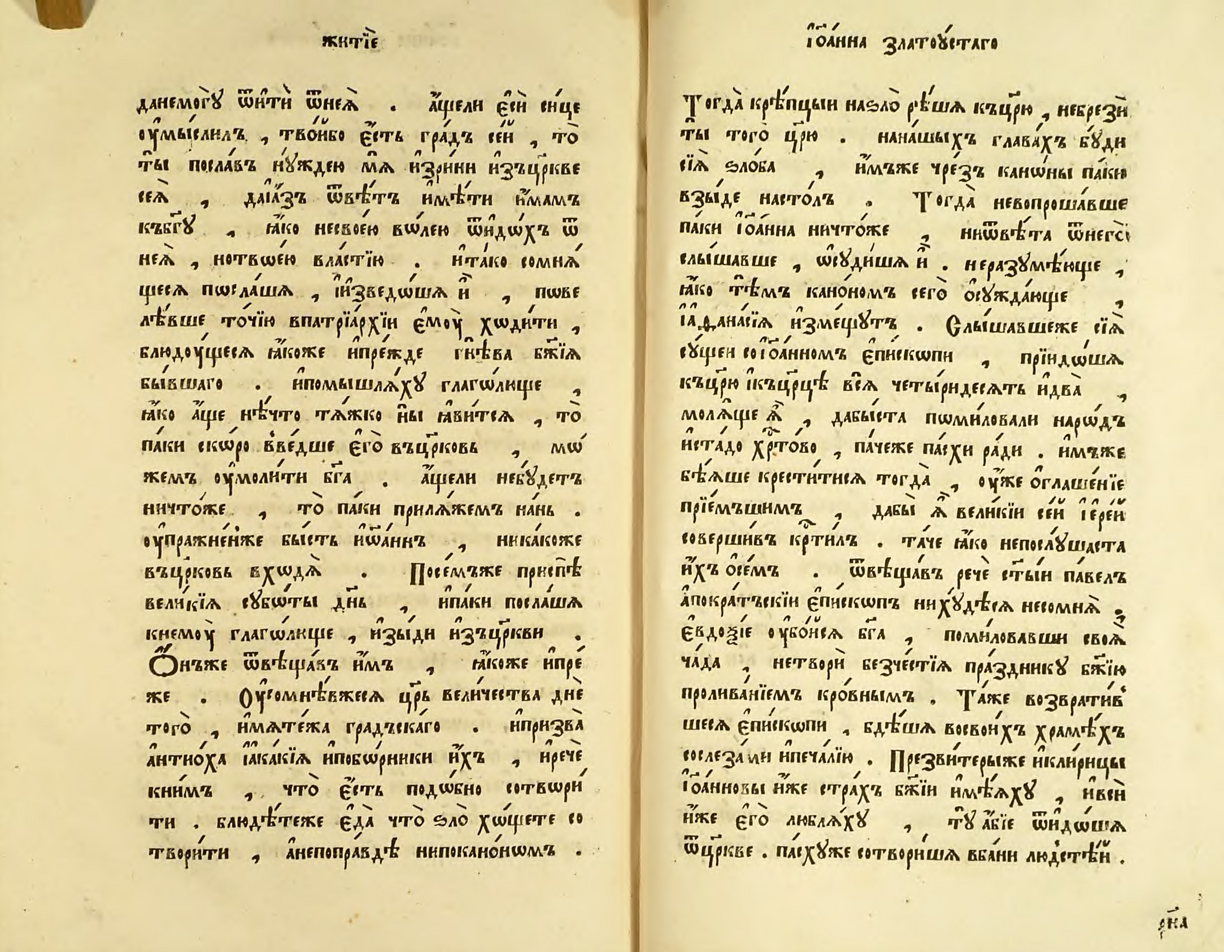 житїѐ
данемогꙋ̀ ѿи́тѝ ѿнеѧ̀ . а҆́щели є҆сѝ си́це
оу҆мы́слилъ , тво́йбо є҆́сть гра́дъ се́й , то̀
ты̀ посла́въ нꙋ́ждею мѧ̀ и҆зрини и҆зъцр҃кве
сеѧ̀ , даі҆а́зъ ѿвѣ́тъ и҆мѣ́ти и҆́мамъ
къбг҃ꙋ , ꙗ҆́ко несвоею во́лею ѿидо́хъ ѿ
неѧ̀ , нотвѡею вла́стїю . и҆та́ко сомнѧ
щесѧ пѡсла́шѧ , і҆и҆зведо́шѧ и҆̀ , пѡве
лѣ́вше то́чїю впатрїа́рхїи є҆мꙋ̀ хѡди́ти ,
блюдꙋщесѧ ꙗ҆́коже и҆пре́жде гнѣ́ва бж҃їѧ
бы́вшаго . и҆помышлѧ́хꙋ глаго́лище ,
ꙗ҆́ко а҆́ще нѣ́что тѧ́жко ны̀ ꙗ҆́витсѧ , то̀
па́ки ско́ро вве́дше є҆го̀ въцр҃ковь , мѡ́
жемъ оу҆моли́ти бг҃а . а҆́щели небꙋ́детъ
ничто́же , то̀ па́ки прилѧ́жемъ на́нь .
оу҆пражне́нже бы́сть и҆ѡа́ннъ , ника́коже
въцр҃ковь вхѡдѧ̀ . Посе́мъже приспѣ̀
вели́кїѧ сꙋбѡ́ты дн҃ь , и҆па́ки посла́шѧ
кнемꙋ̀ глаго́лище , и҆зы́ди и҆зъцр҃кви .
Ѻ҆́нъже ѿвѣща́въ и҆́мъ , ꙗ҆́коже и҆пре́
же . Оу҆сомнѣ́вжесѧ цр҃ь вели́чества днѐ
того̀ , и҆мѧте́жа гра́дъскаго . и҆призва̀
а҆нтио́ха і҆а҆ка́кїѧ и҆побо́рники и҆́хъ , и҆речѐ
книмъ , что̀ є҆́сть подо́бно сотвори́
ти . блюдѣ́теже є҆да̀ что̀ ѕло̀ хо́щете со
твори́ти , а҆непопра́вдѣ нипокано́нѡмъ .
і҆ѡ҆а́нна златоꙋ́стаго
Тогда̀ крѣ́пцыи наѕло̀ рѣ́шѧ къцр҃ю , небрезѝ
ты̀ того̀ цр҃ю . нана́шыхъ глава́хъ бꙋ́ди
сїѧ̀ ѕло́ба , и҆́мъже чре́зъ кано́ны па́ки
взы́де насто́лъ . Тогда̀ невопроша́вше
па́ки і҆ѡа́нна ничто́же , ниѿвѣ́та ѿнегѡ̀
слы́шавше , ѡ҆сꙋди́шѧ и҆̀ . неразꙋмѣ́юще ,
ꙗ҆́ко тѣ́мъ кано́номъ сего̀ ѡ҆сꙋжда́юще ,
і҆а҆ѳана́сїѧ и҆зме́щꙋтъ . Слы́шавшеже сїѧ̀
сꙋ́щеи соі҆ѡа́нномъ є҆пи́скопи , прїидо́шѧ
къцр҃ю и҆къцр҃цѣ всѧ̀ четы́ридесѧть и҆два̀ ,
молѧ́ще ѧ҆̀ , дабы́ста пѡми́ловали наро́дъ
и҆ста́до хр҃то́во , па́чеже па́схи ра́ди . и҆́мъже
бѣ́ѧше крести́тисѧ тогда̀ , оу҆́же ѡ҆глаше́нїе
прїе́мъшимъ , дабы̀ ѧ҆̀ вели́кїи се́й і҆ере́й
соверши́въ кр҃ти́лъ . та́че ꙗ҆́ко непослꙋ́шаста
и҆́хъ ѻ҆́семъ . ѿвѣща́въ речѐ ст҃ы́и па́велъ
а҆покра́тъскїи є҆пи́скопъ нихꙋдѣ́сѧ несомнѧ̀ ,
є҆вдоѯі́е оу҆бо́йсѧ бг҃а , поми́ловавши своѧ̀
ча́да , нетворѝ безче́стїѧ пра́здникꙋ бж҃їю
пролива́нїемъ кро́внымъ . Та́же возврати́в
шесѧ є҆пи́скопи , бдѣ́шѧ восвои́хъ хра́мѣхъ
сослеза́ми и҆печа́лїю . Презви́терыже и҆кли́рицы
і҆ѡа́нновы и҆́же стра́хъ бж҃їи и҆мѣ́ѧхꙋ , и҆всѝ
и҆́же є҆го̀ люблѧ́хꙋ , тꙋ̀ а҆́бїе ѿидо́шѧ
ѿцр҃кве . па́схꙋже сотвори́шѧ вба́ни лю́дстѣй .
рк҃а